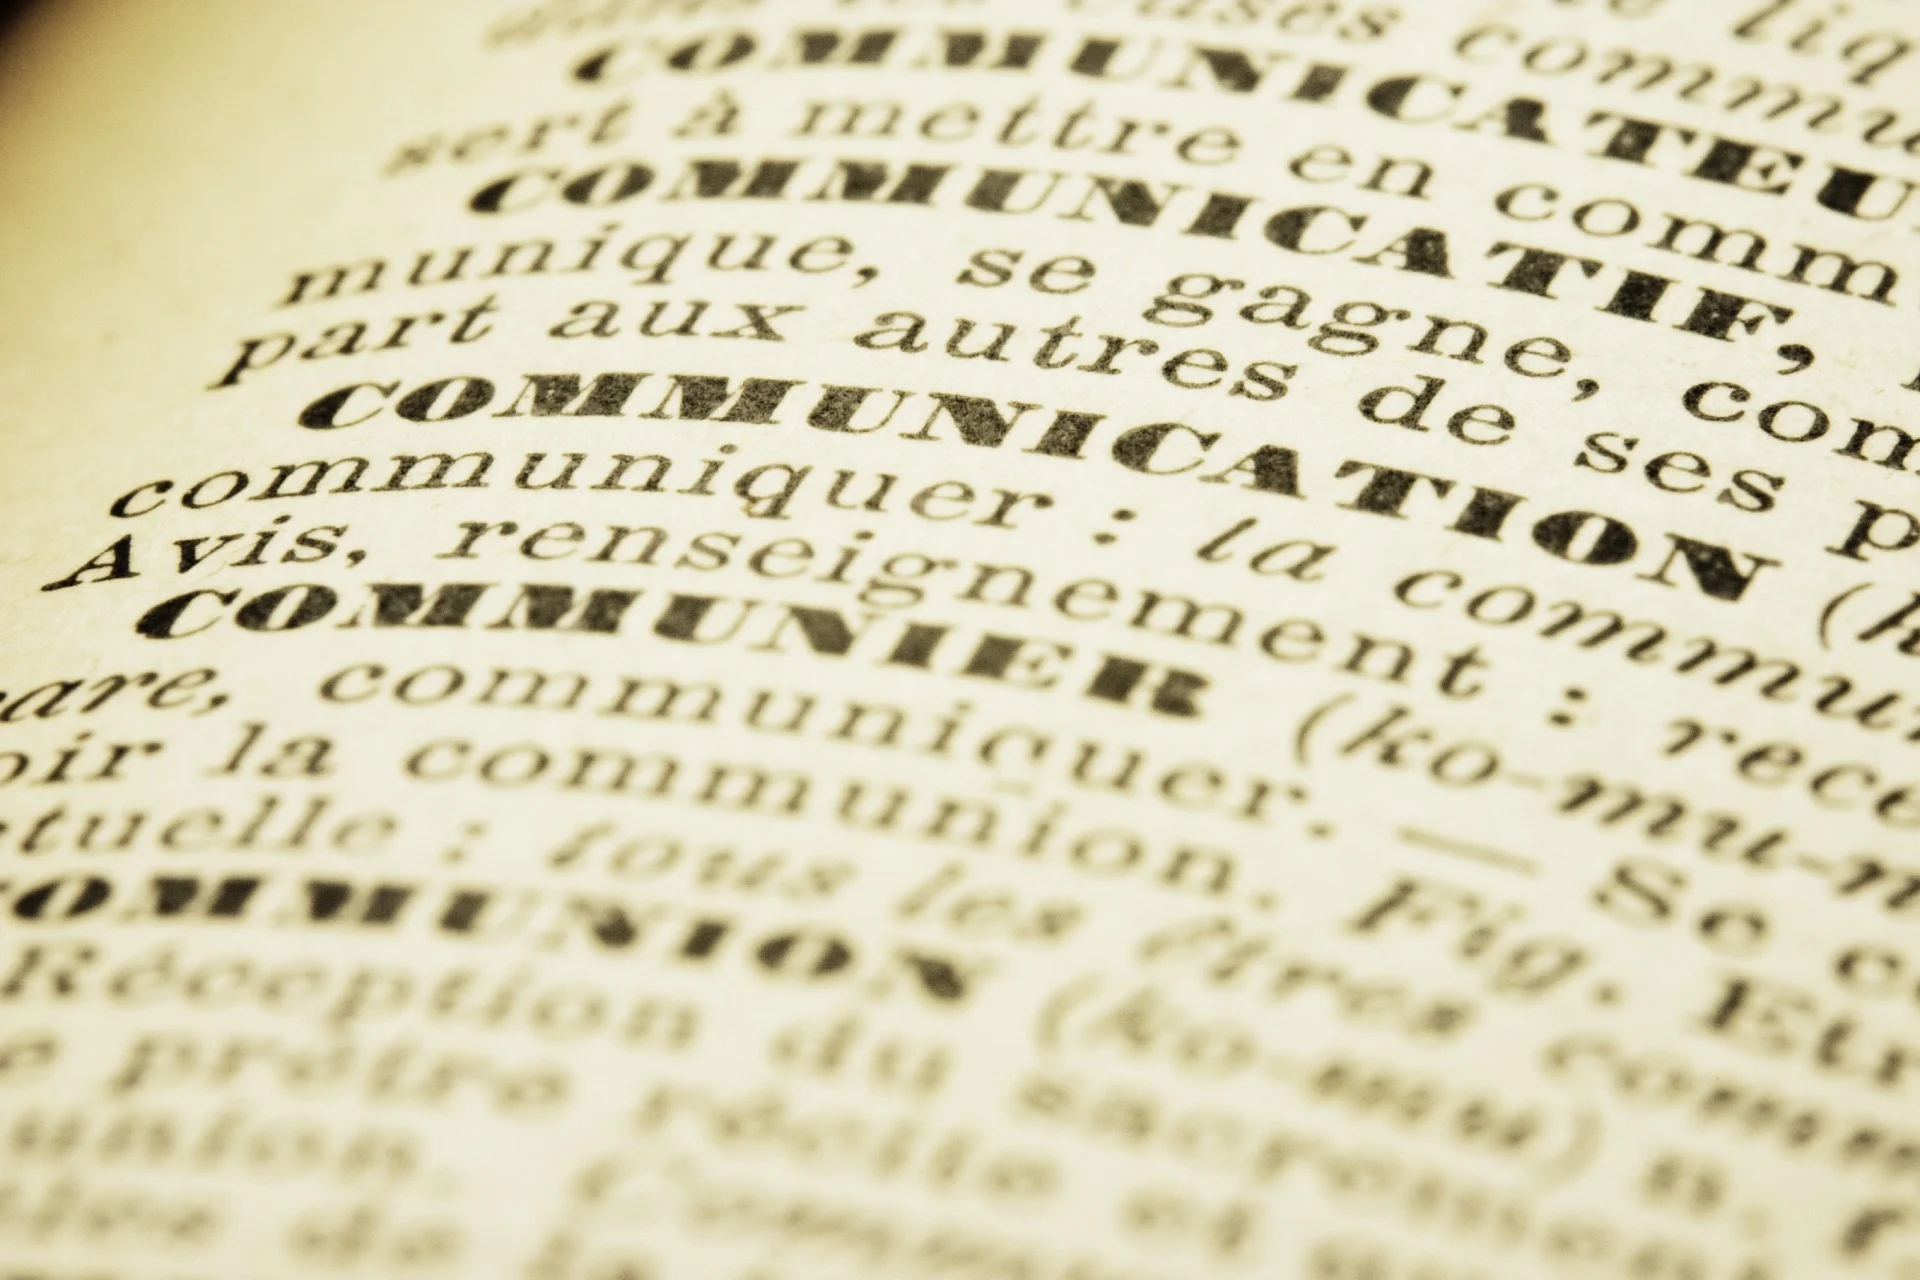 liq
vases commu
COMMUNICATEU
sert à mettre en comm
COMMUNICATIF,
munique, se gagne, com
part aux autres de ses p
COMMUNICATION (k
communiquer : la commun
Avis, renseignement : rece
COMMUNIER (ko-mu-n
are, communiquer. — Se c
oir la communion. Fig. Etr
tuelle : tous les êtres comm
OMMUNION (ko-mu) n.
Réception du sacremen
e prêtre récite et
union.